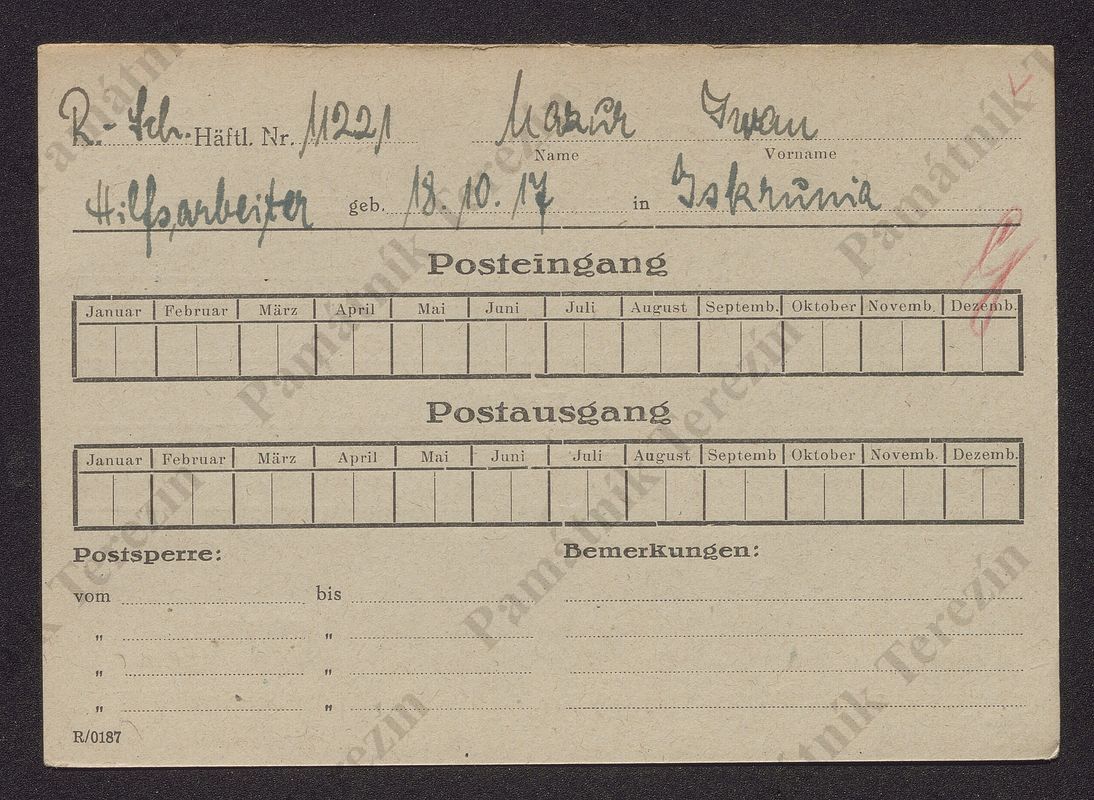 R.-Sch. Häftl. Nr. 11221 Mazur Iwan
Name Vorname
Hilfsarbeiter geb. 18. 10. 17 in Iskrunia
Posteingang
Januar Februar März April Mai Juni Juli August Septemb. Oktober Novemb. Dezemb.
Postausgang
Januar Februar März April Mai Juni Juli August Septemb Oktober Novemb. Dezemb.
Postsperre: Bemerkungen:
vom bis
" "
" "
" "
R/0187
Památník Terezín